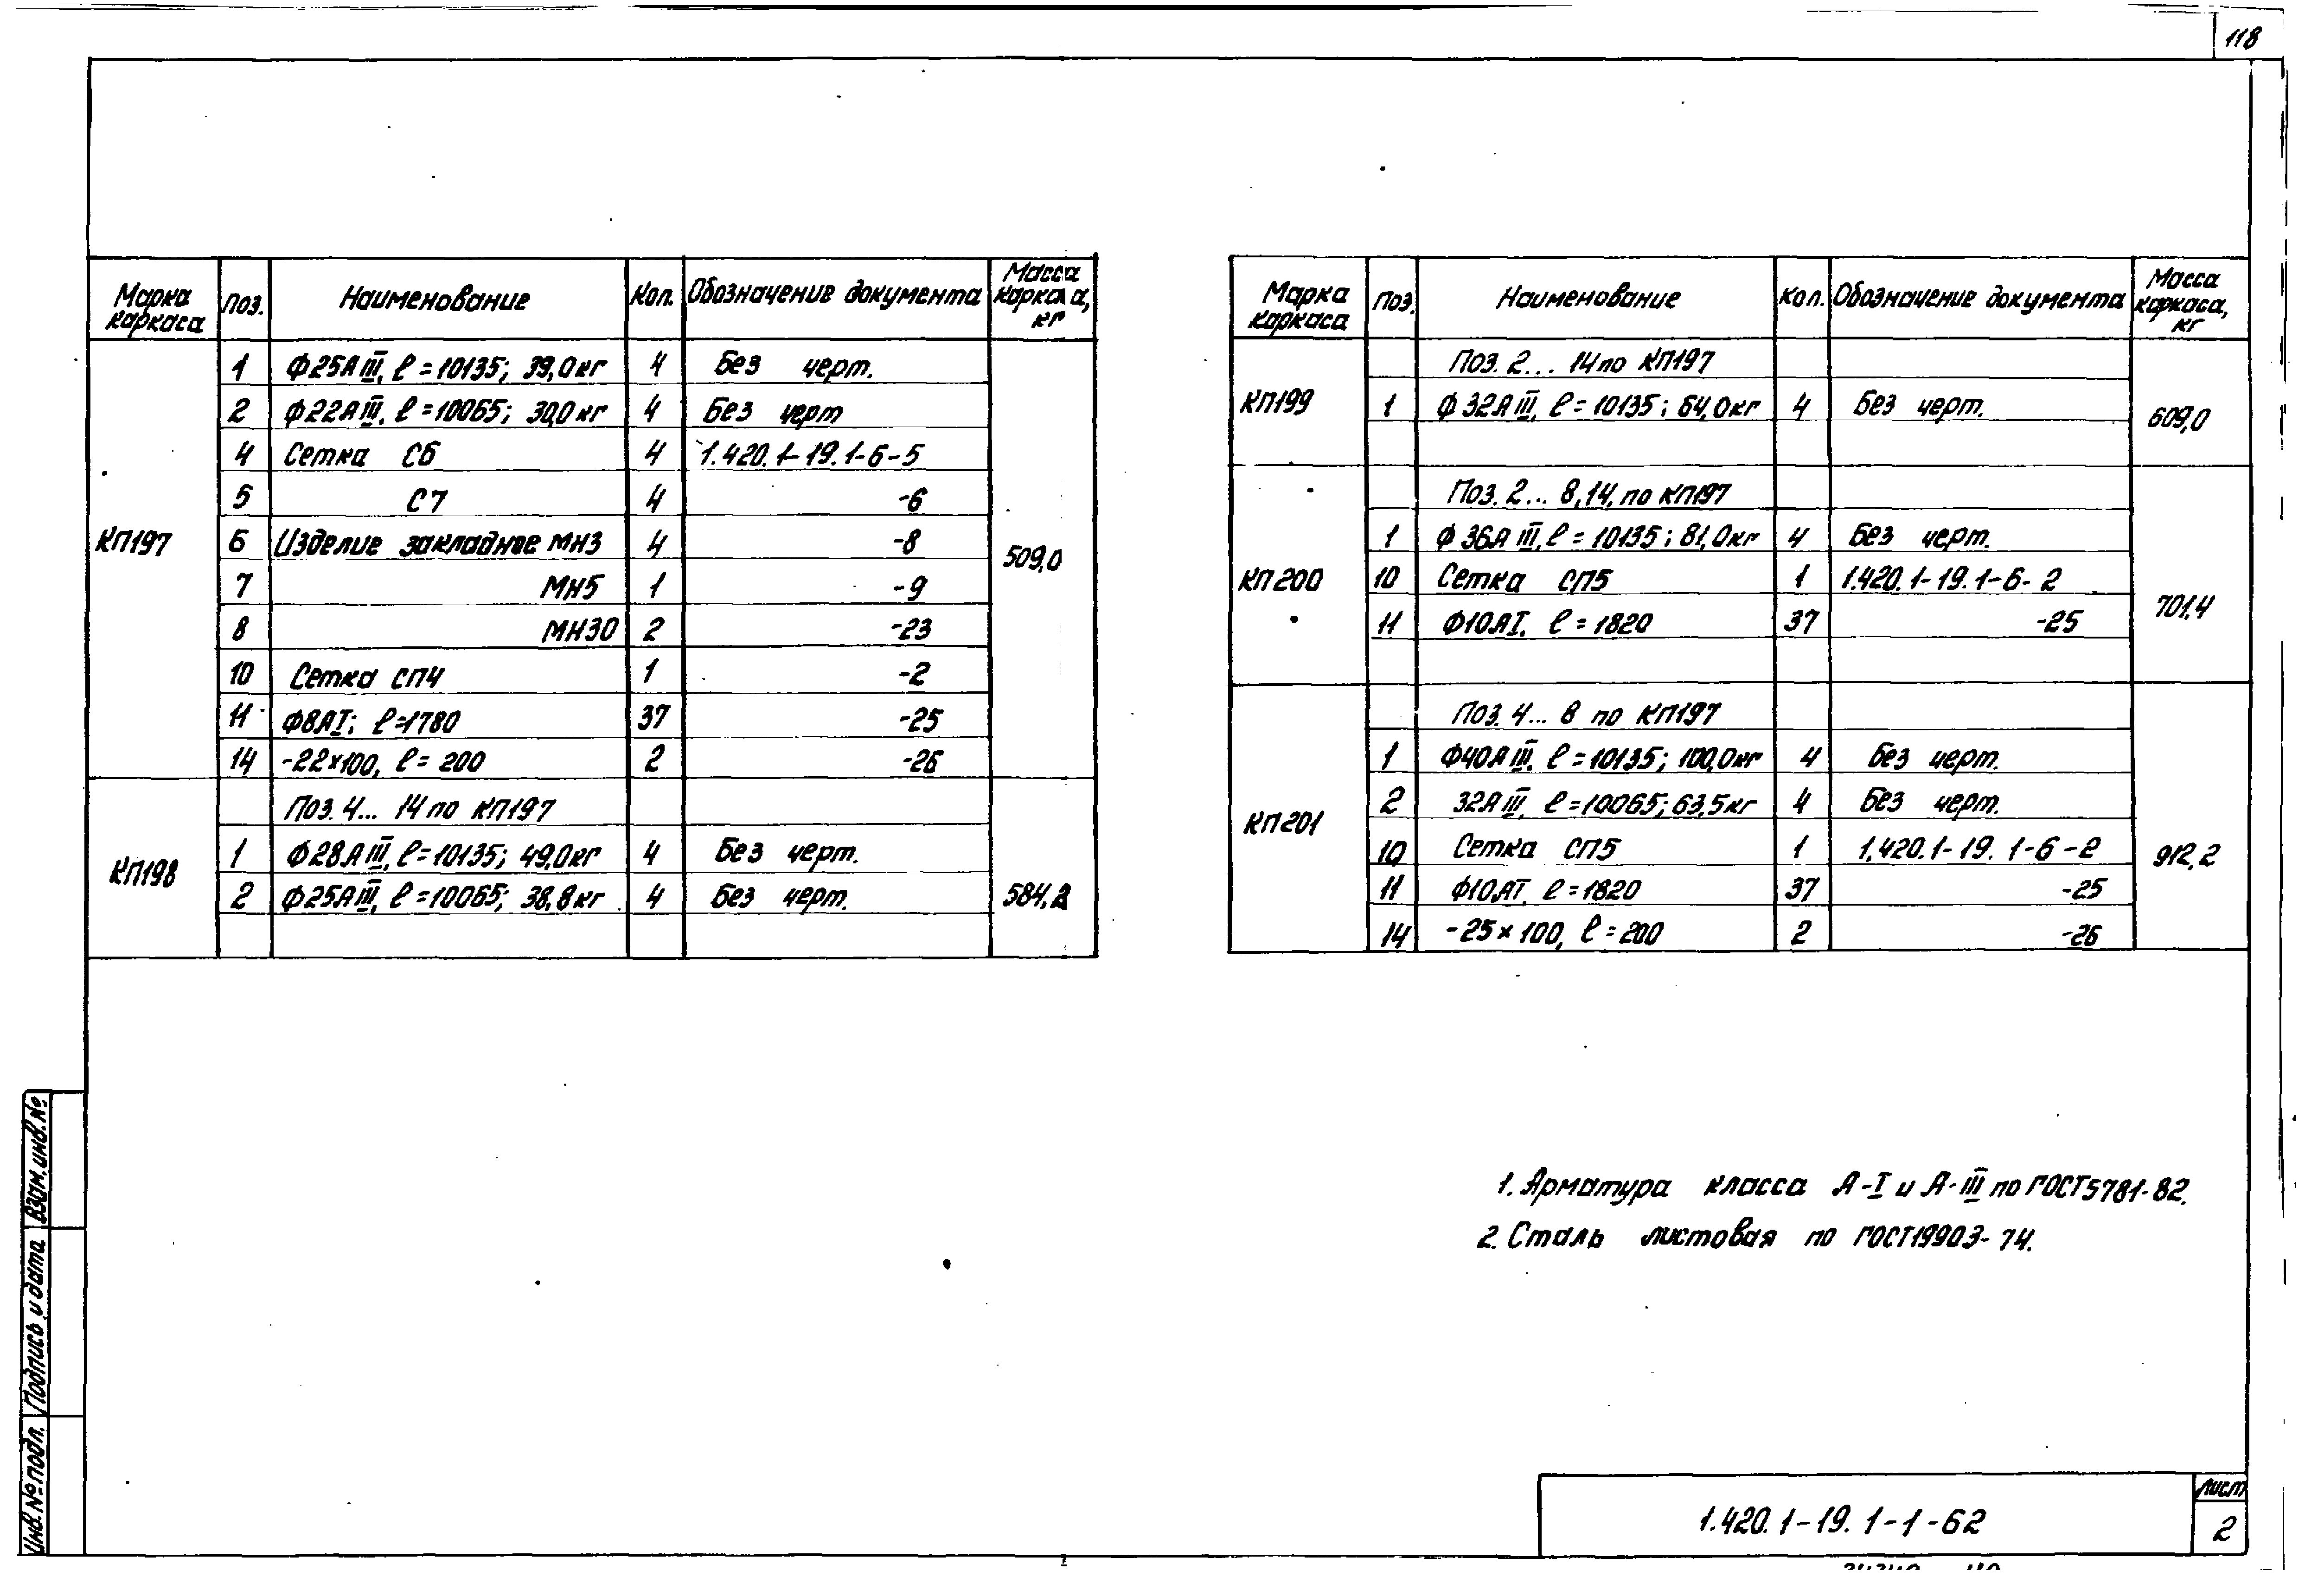 118
Марка каркаса Поз. Наименование Кол. Обозначение документа Масса каркаса, кг
КП197 509,0
1 Ф25АIII, ℓ=10135; 39,0кг 4 Без черт.
2 Ф22АIII, ℓ=10065; 30,0кг 4 Без черт
4 Сетка С6 4 1.420.1-19.1-6-5
5 С7 4 -6
6 Изделие закладное МН3 4 -8
7 МН5 1 -9
8 МН30 2 -23
10 Сетка СП4 1 -2
11 Ф8АI; ℓ=1780 37 -25
14 -22×100, ℓ=200 2 -26
КП198
Поз. 4... 14 по КП197
1 Ф28АIII, ℓ=10135; 49,0кг 4 Без черт.
2 Ф25АIII, ℓ=10065; 38,8кг 4 Без черт.
Марка каркаса Поз. Наименование Кол. Обозначение документа Масса каркаса, кг
КП199 609,0
Поз. 2... 14 по КП197
1 Ф32АIII, ℓ=10135; 64,0кг 4 Без черт.
КП200 701,4
Поз. 2... 8,14, по КП197
1 Ф36АIII, ℓ=10135; 81,0кг 4 Без черт.
10 Сетка СП5 1 1.420.1-19.1-6-2
11 Ф10АI, ℓ=1820 37 -25
КП201 912,2
Поз. 4... 8 по КП197
1 Ф40АIII, ℓ=10135; 100,0кг 4 Без черт.
2 32АIII, ℓ=10065; 63,5кг 4 Без черт.
10 Сетка СП5 1 1.420.1-19.1-6-2
11 Ф10АI, ℓ=1820 37 -25
14 -25×100, ℓ=200 2 -26
1. Арматура класса А-I и А-III по ГОСТ5781-82.
2. Сталь листовая по ГОСТ19903-74.
Инв.№подл. Подпись и дата Взам.инв.№
1.420.1-19.1-1-62
Лист
2